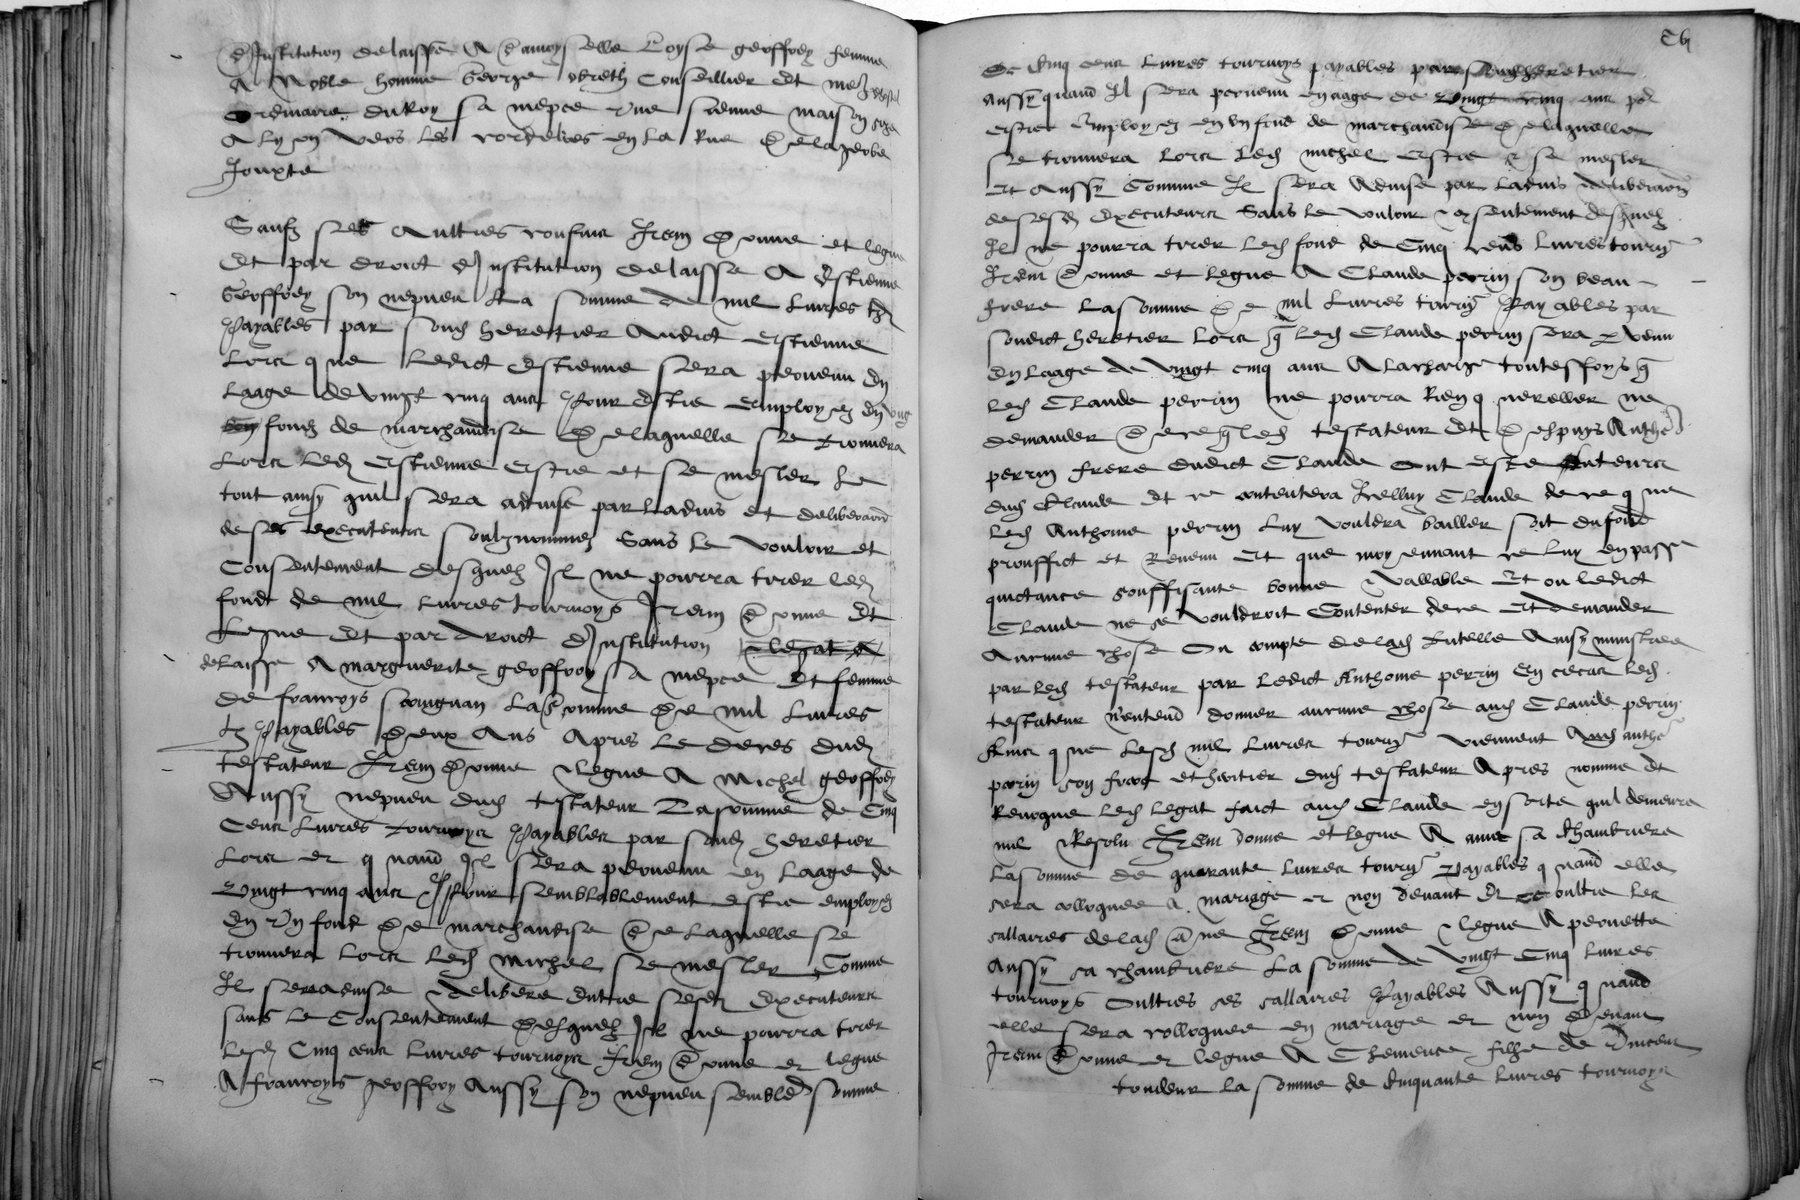 d'Institution delaisse A damoyselle Loyse geoffroy femme
A Noble homme George obreth Conseillier et
ordinaire du Roy sa niepce Une sienne maison size
A lyon vers les cordeliers en la Rue de la gerbe
Jouxte
Saufz ses aultres confins Item donne et legue
Et par droict d'Institution delaisse A Estienne
Geoffroy son nepveu La somme de mil livres tz
Payables par sond heretier Audict Estienne
Lors que ledict Estienne sera parvenu en
laage de vingt cinq ans Pour estre employez en ung
fondz de marchandise de laquelle se trouvera
Lors led Estienne estre et se mesler Le
tout ainsy quil sera advise par ladvis et deliberaon
de ses executeurs soubznommez Sans le vouloir et
Consentement desquelz Il ne pourra tirer led
fond de mil livres tournoys Item donne Et
Legue Et par droict d'Institution legat A
delaisse A marguerite geoffroy sa niepce Et femme
de francoys La somme de mil livres
tz Payables deux Ans Apres le deces dud
testateur Item donne & legue A Michel geoffroy
Aussy nepveu dud testateur La somme de Cinq
Cens livres tournoys Payables par sond heretier
Lors et quand Il sera parvenu en laage de
vingt cinq ans Pour semblablement estre employez
En Un fond de marchandise de laquelle se
trouvera lors led Michel se mesler Comme
Il sera advise & delibere entre sesd Executeurs
sans le Consentement desquelz Il ne pourra tirer
lesd Cinq cens livres tournoys Item donne et legue
A francoys geoffroy Aussy son nepveu semble somme
De Cinq cens livres tournoys payables par sond heretier
Aussy quand Il sera parvenu en aage de vingt cinq ans por
estre employez en un fond de marchandise de laquelle
se trouvera lors led michel estre & se mesler
Et Aussy Comme Il sera Advise par ladvis & deliberaon
de sesd Executeurs Sans le vouloir & consentement desquelz
Il ne pourra tirer led fond de Cinq cens livres tourn
Item donne et legue A Claude perrin son beau
frere La somme de mil livres tourn Payables par
sondict heretier lors q led Claude perrin sera pvenu
En laage de vingt cinq ans A la charge touteffoys q
led Claude perrin ne pourra Rien quereller ne
demander de ce q led testateur Et despuys Anthe
perrin frere dudict Claude ont este tuteurs
dud Claude Et se contentera Icelluy Claude de ce que
led Anthoine perrin luy vouldra bailler soit du fond
prouffict et Revenu Et que moyennant ce luy en passe
quictance souffisante bonne & vallable Et ou ledict
Claude ne se vouldroit Contenter de ce Et demander
Aucune chose Du compte de lad tutelle Ainsy ministree
par led testateur par ledict Anthoine perrin En ce cas led
testateur n'entend donner aucune chose aud Claude perrin
Ains que lesd mil livres tourn viennent Aud anthe
perin son frere et heritier dud testateur Apres nomme Et
Revoque led legat faict aud Claude en sorte quil demeure
nul & Resolu Item donne et legue A anne sa Chambriere
La somme de quarante livres tourn Payables quand elle
sera colloquee A mariage et non devant Et oultre les
sallaires de lad Ane Item donne & legue A pernette
Aussy sa chambriere La somme de vingt Cinq livres
tournoys Oultres ses sallaires Payables Aussy quand
elle sera colloquee en mariage et non devant
Item donne et legue A Clemence filhe de Vincent
tondeur la somme de Cinquante livres tournoys